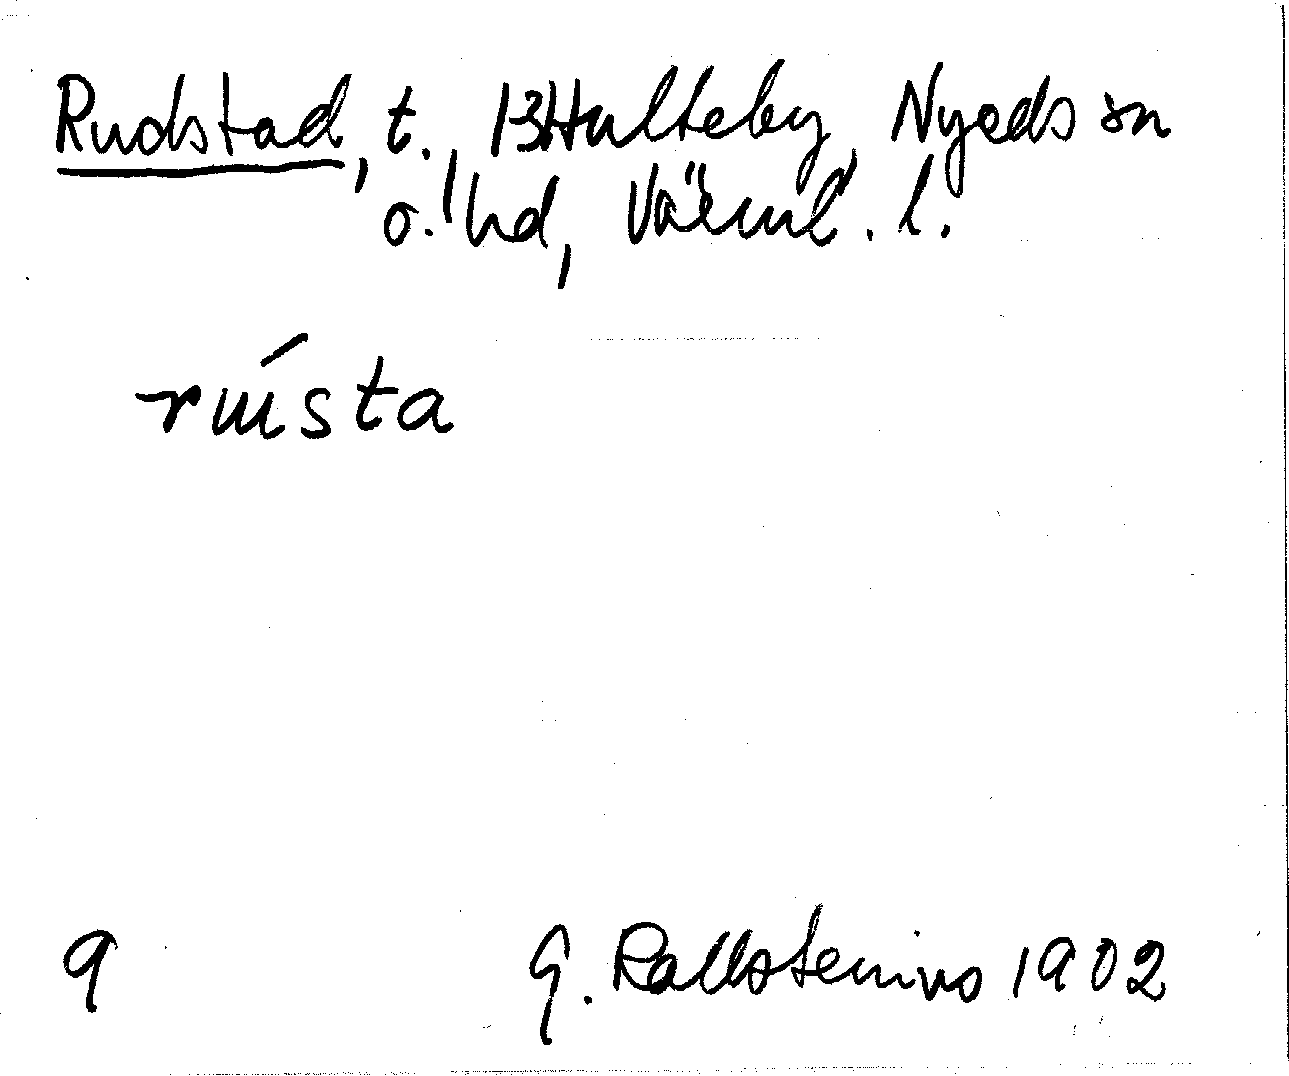 Rudstad, t., 13 Hulteby, Nyeds sn
o. hd, Värml. l.
rússta
9 G. Kallstenius 1902